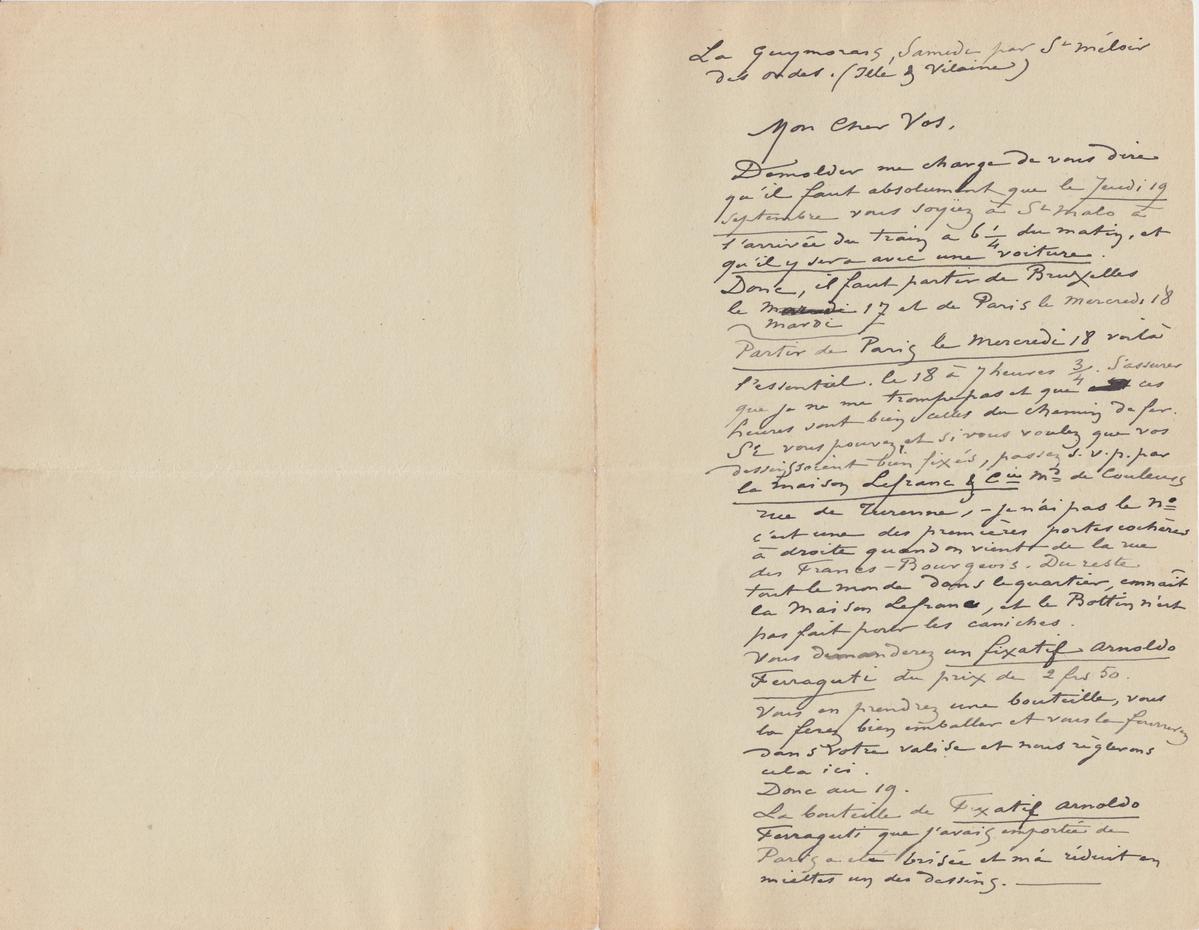 La Guymorais, Samedi par St Méloir
des ondes. (Ille & Vilaine)
Mon Cher Vos,
Demolder me charge de vous dire
qu'il faut absolument que le Jeudi 19
septembre vous soyiez à St Malo à
l'arrivée du train à 6 1/4 du matin, et
qu'il y sera avec une voiture.
Donc, il faut partir de Bruxelles
le mardi 17 et de Paris le mercredi 18
Partir de Paris le Mercredi 18 voilà
l'essentiel. le 18 à 7 heures 3/4. S'assurer
que je ne me trompe pas et que ces
heures sont bien celles du chemin de fer.
Si vous pouvez, et si vous voulez que vos
dessins soient bien fixés, passez s.v.p. par
la maison Lefranc & Cie Md de Couleurs
rue de Turenne, - je n'ai pas le No
c'est une des premières portes cochères
à droite quand on vient de la rue
des Francs-Bourgeois. Du reste
tout le monde dans le quartier, connait
la Maison Lefranc, et le Bottin n'est
pas fait pour les caniches.
Vous demanderez un fixatif Arnoldo
Ferraguti du prix de 2 frs 50.
Vous en prendrez une bouteille, vous
la ferez bien emballer et vous la fourrerez
dans votre valise et nous règlerons
cela ici.
Donc au 19.
La bouteille de Fixatif Arnoldo
Ferraguti que j'avais emportée de
Paris a été brisée et m'a réduit en
miettes un des dessins.